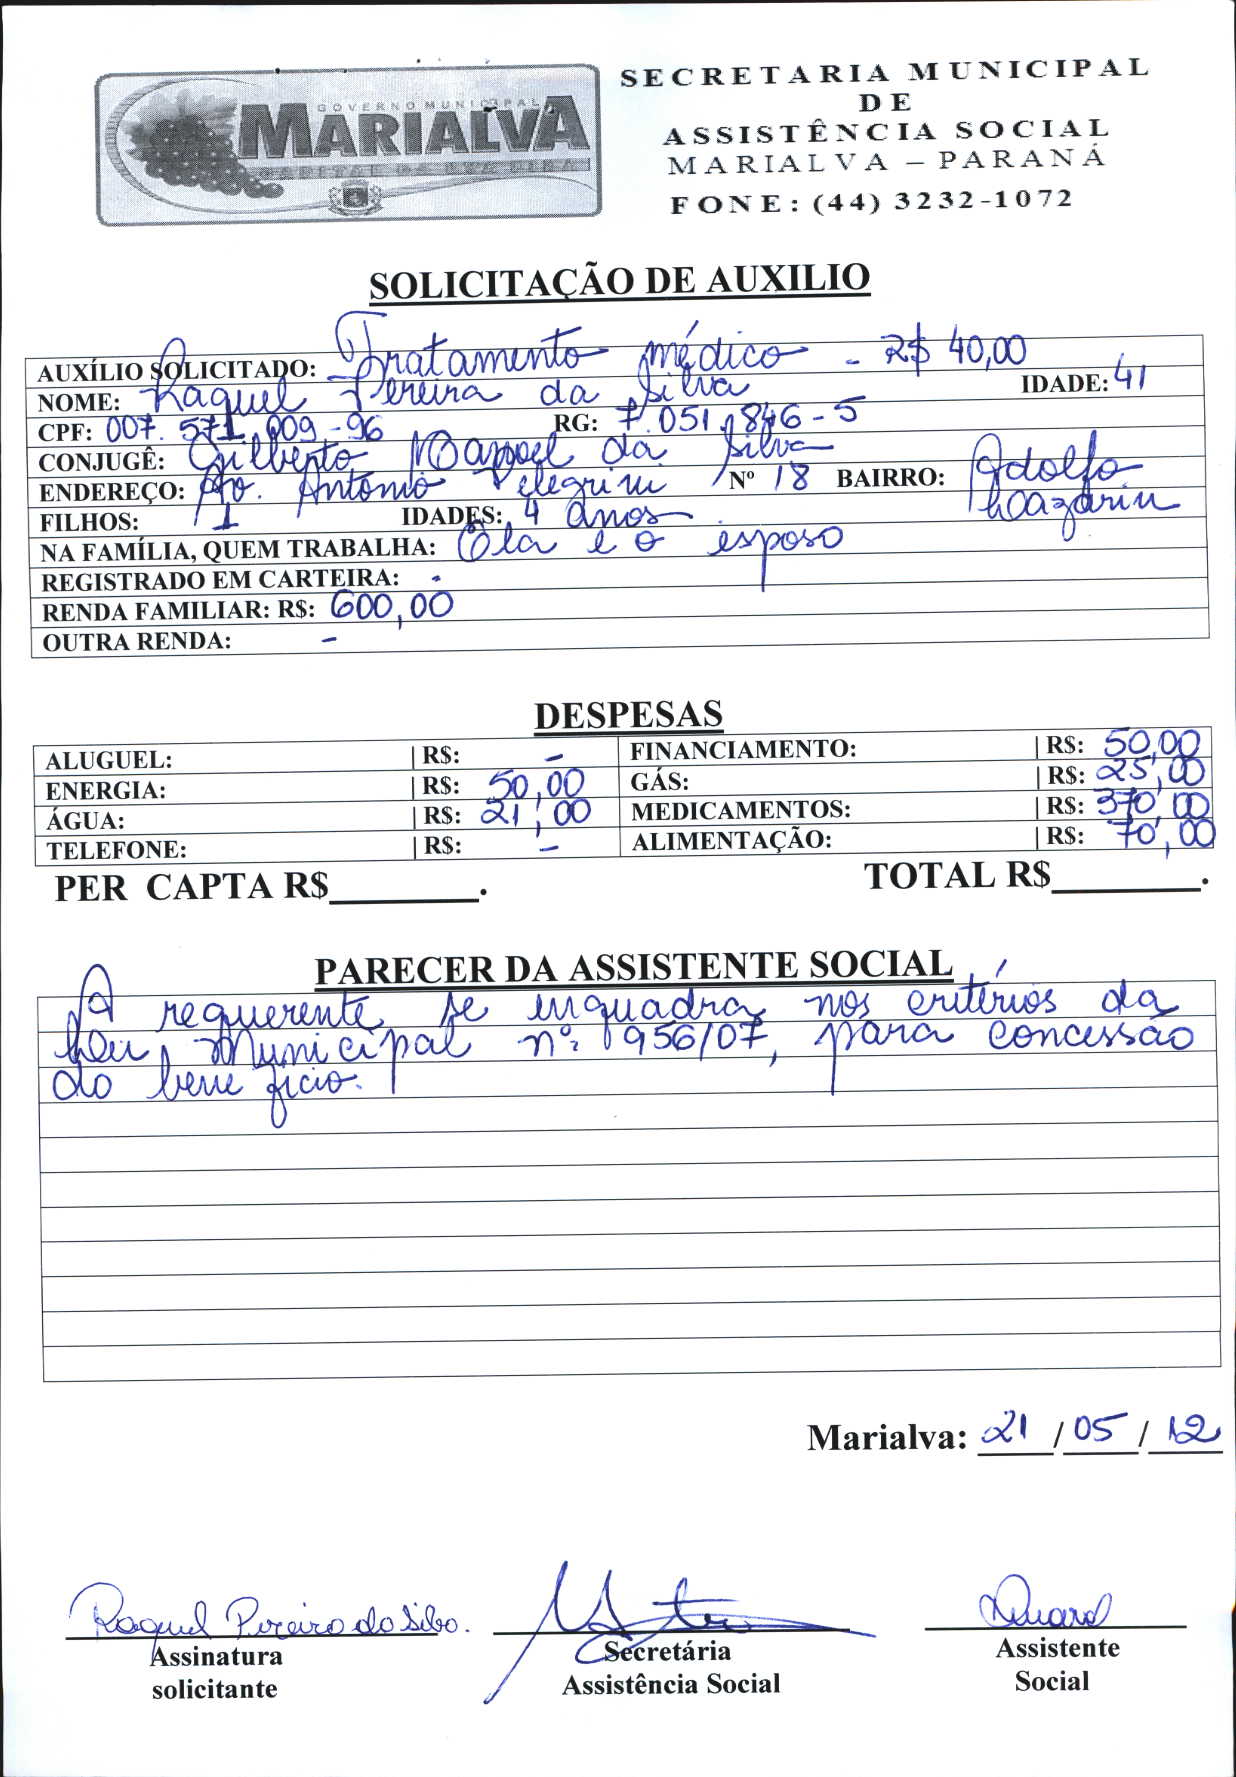 GOVERNO MUNICIPAL
MARIALVA
CAPITAL DA UVA FINA
SECRETARIA MUNICIPAL
DE
ASSISTÊNCIA SOCIAL
MARIALVA – PARANÁ
FONE: (44) 3232-1072
SOLICITAÇÃO DE AUXILIO
AUXÍLIO SOLICITADO: Tratamento médico - R$ 40,00
NOME: Raquel Pereira da Silva IDADE: 41
CPF: 007.571.009-96 RG: 7.051.846-5
CONJUGÊ: Gilberto Manoel da Silva
ENDEREÇO: Av. Antônio Pelegrini Nº 18 BAIRRO: Adolfo
FILHOS: 1 IDADES: 4 anos
NA FAMÍLIA, QUEM TRABALHA: Ela e o esposo
REGISTRADO EM CARTEIRA: -
RENDA FAMILIAR: R$: 600,00
OUTRA RENDA: -
DESPESAS
ALUGUEL: | R$: - FINANCIAMENTO: | R$: 50,00
ENERGIA: | R$: 50,00 GÁS: | R$: 25,00
ÁGUA: | R$: 21,00 MEDICAMENTOS: | R$: 370,00
TELEFONE: | R$: - ALIMENTAÇÃO: | R$: 70,00
PER CAPTA R$________. TOTAL R$________.
PARECER DA ASSISTENTE SOCIAL
A requerente se enquadra nos critérios da
Lei Municipal nº 956/07, para concessão
do benefício.
Marialva: 21/05/12
Raquel Pereira da Silva.
Assinatura
solicitante
Secretária
Assistência Social
Assistente
Social